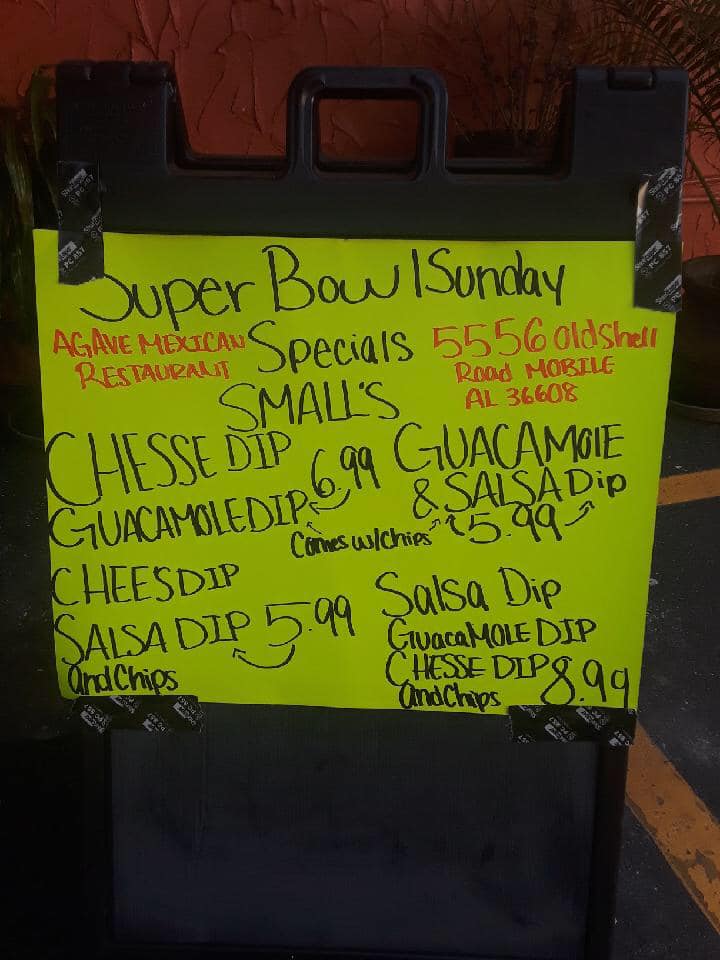 Super Bowl Sunday
AGAVE MEXICAN
RESTAURANT
Specials
5556 Old Shell
Road MOBILE
AL 36608
SMALL'S
CHESSE DIP
GUACAMOLE DIP
6.99
Comes w/chips
GUACAMOlE
& SALSA Dip
5.99
CHEES DIP
SALSA DIP 5.99
and Chips
Salsa Dip
GuacaMOLE DIP
CHESSE DIP
and Chips
8.99